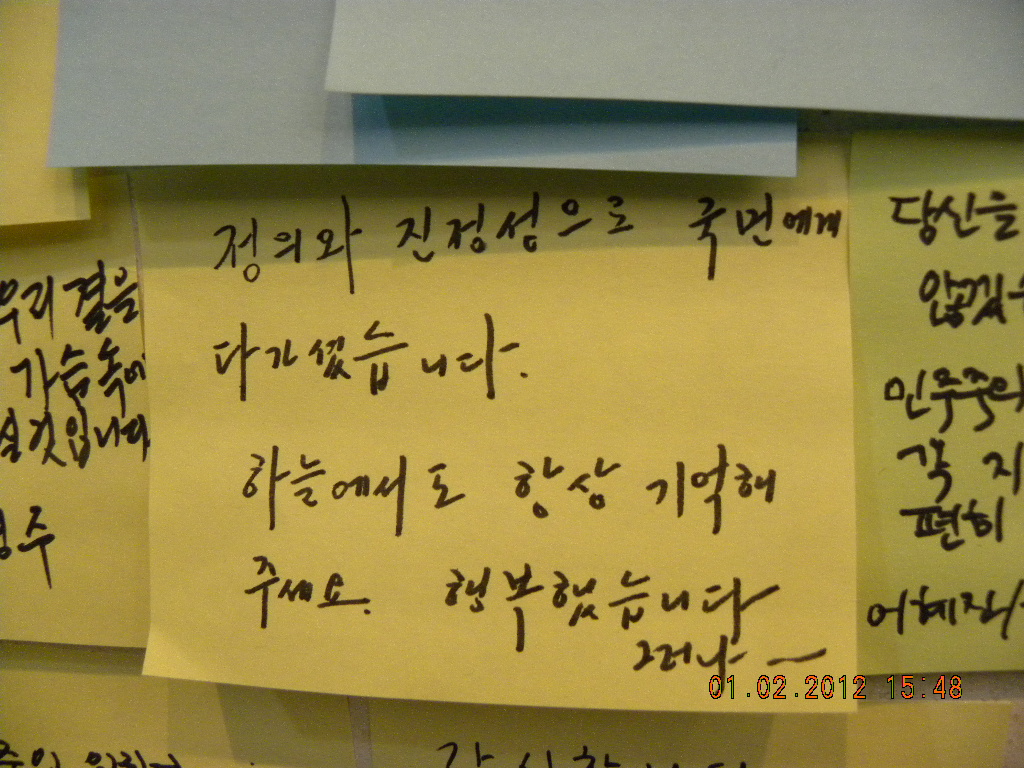 정의와 진정성으로 국민에게
다가섰습니다.
하늘에서도 항상 기억해
주세요. 행복했습니다
그러나 ~
우리 곁을
가슴속에
것입니다
당신을
않겠
민주주의
편히
01.02.2012 15:48